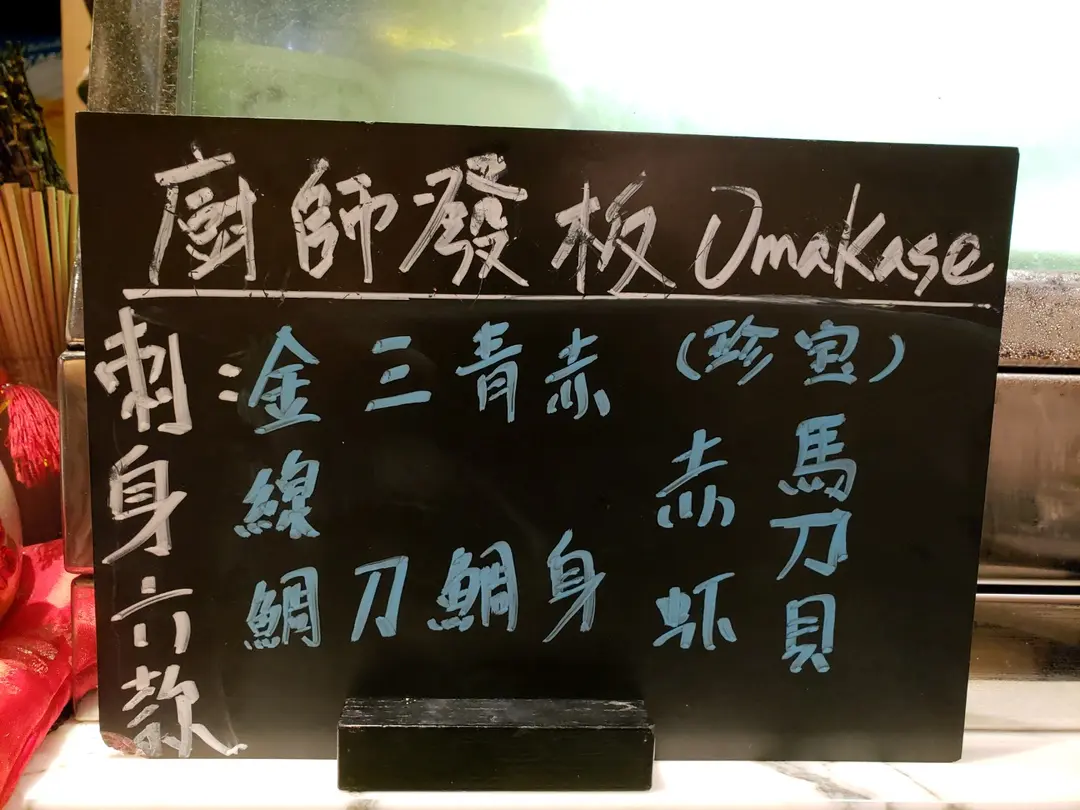 廚師發板 Omakase
刺身六款：
金線鯛
三刀
青鯛
赤身
(珍宝)
赤虾
馬刀貝